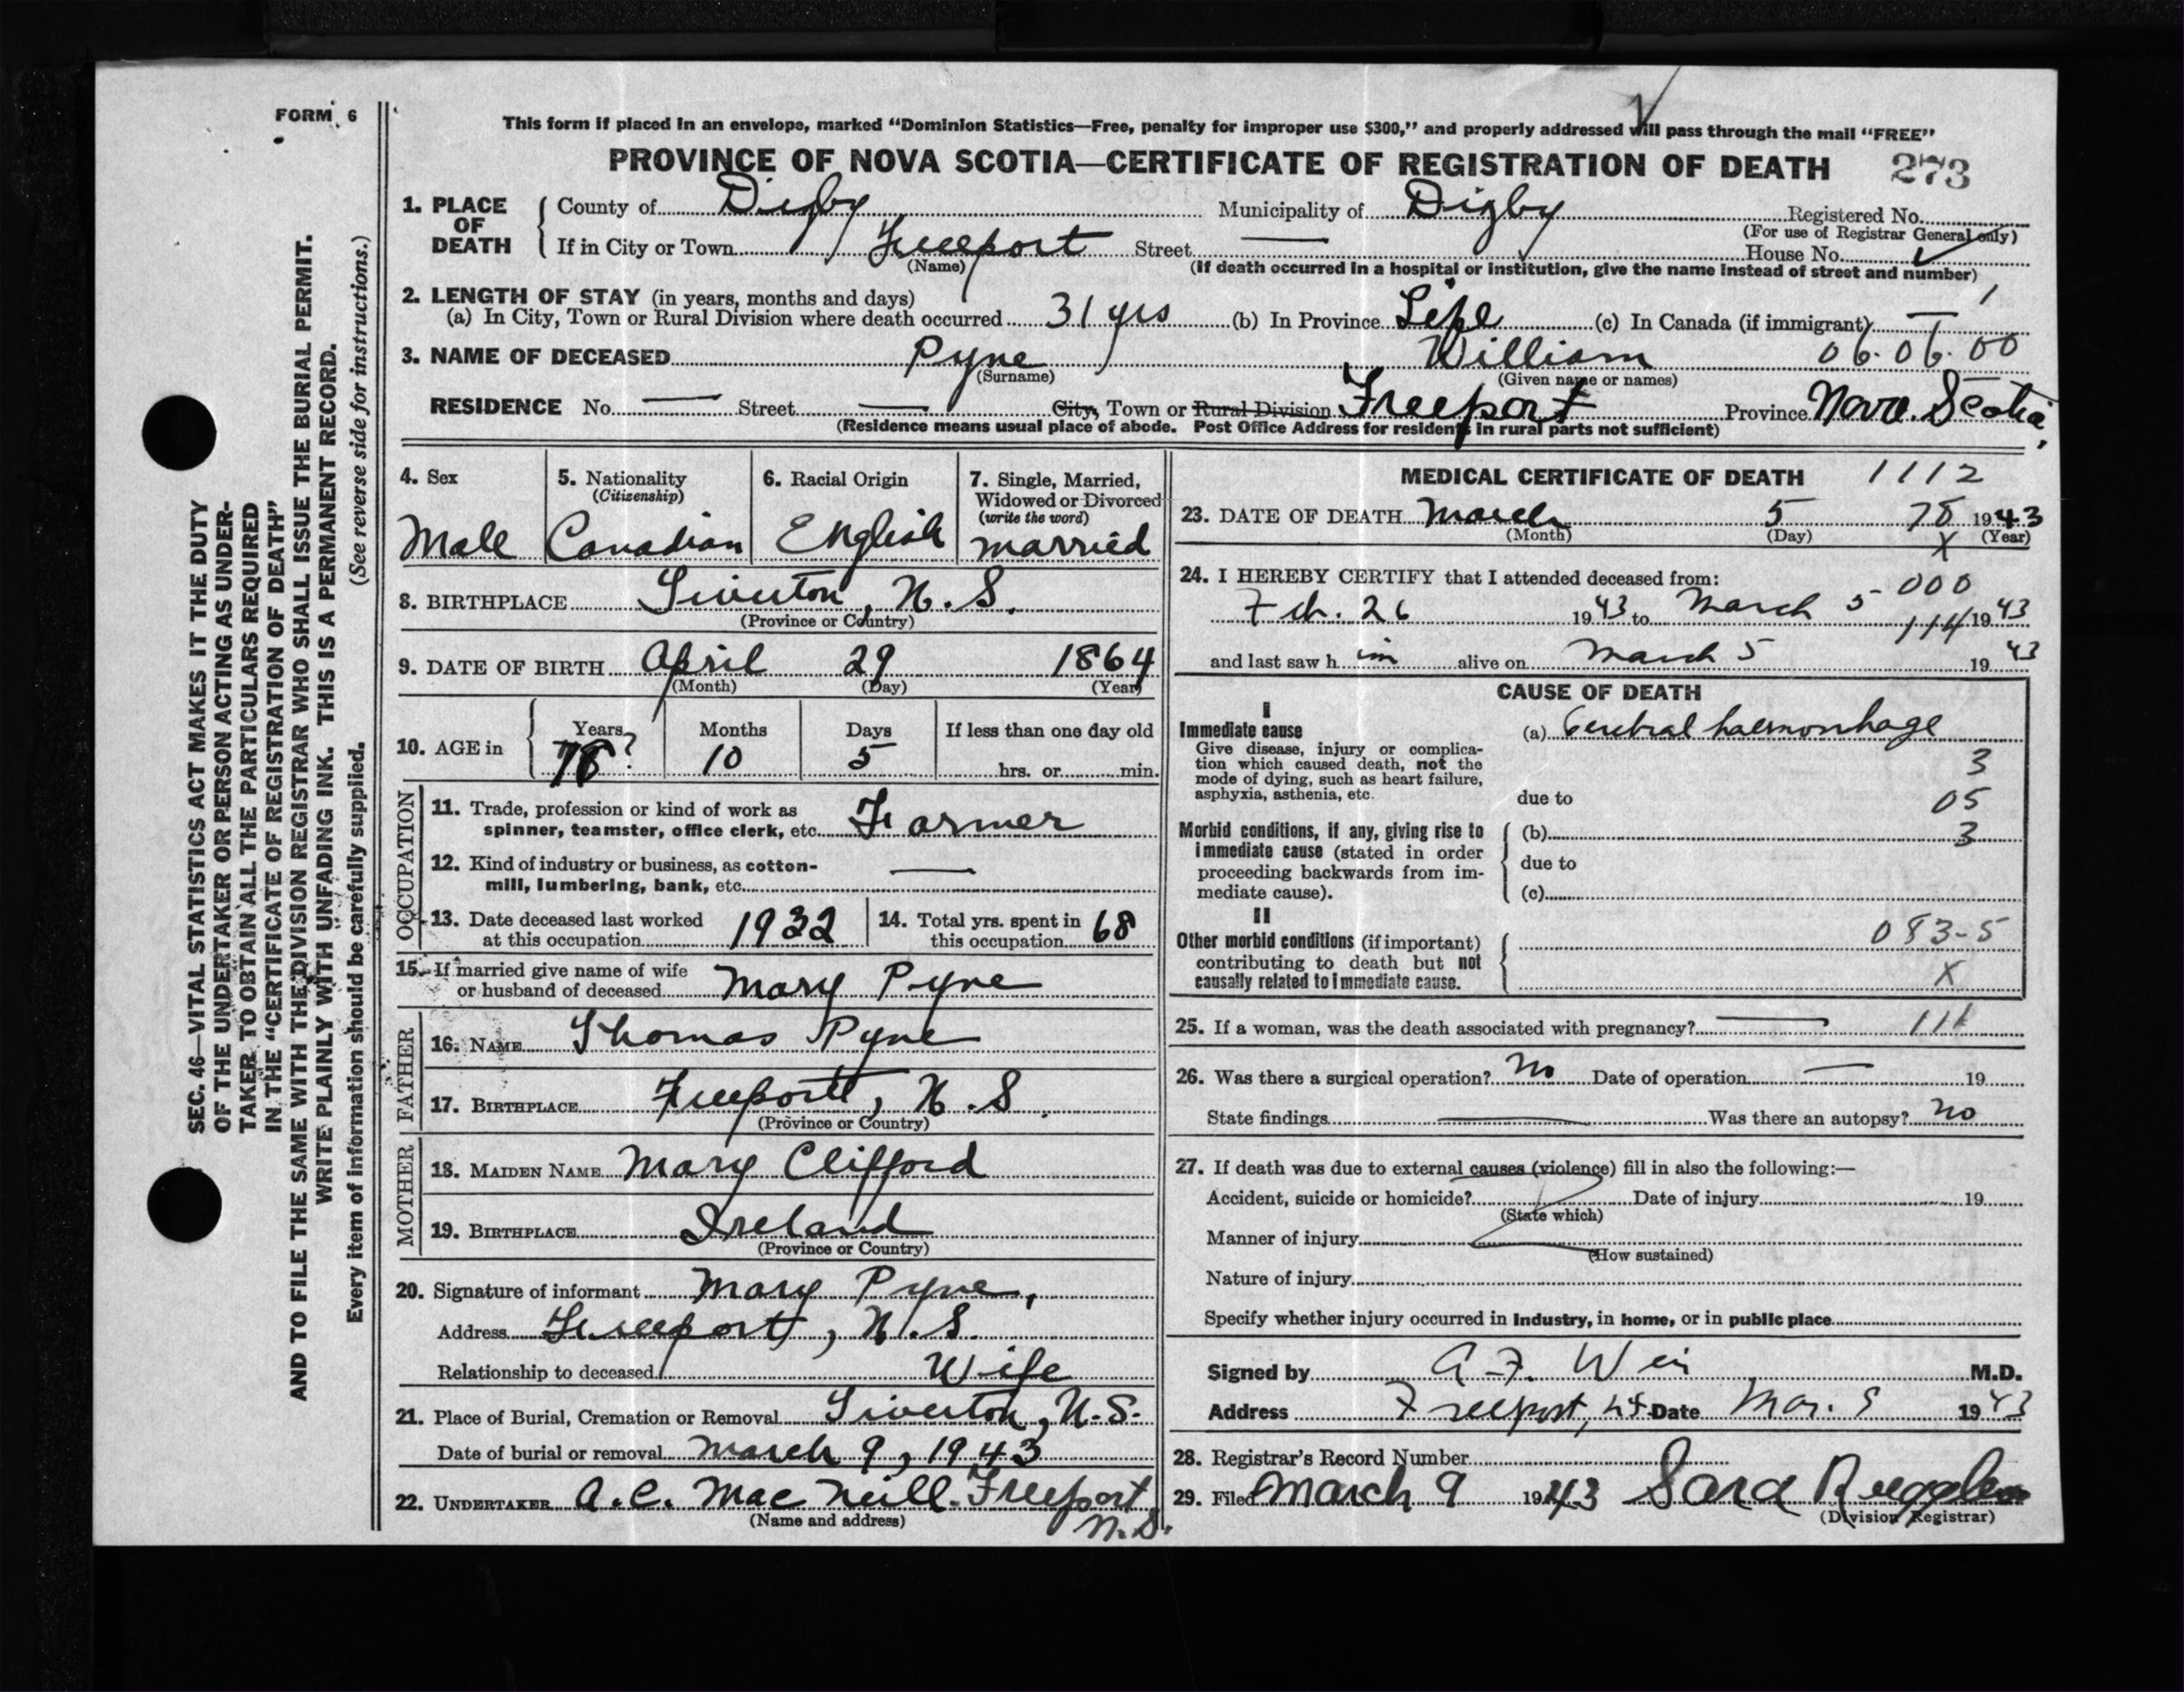 FORM 6
This form if placed in an envelope, marked "Dominion Statistics—Free, penalty for improper use $300," and properly addressed will pass through the mail "FREE"
PROVINCE OF NOVA SCOTIA—CERTIFICATE OF REGISTRATION OF DEATH 273
1. PLACE OF DEATH
County of Digby Municipality of Digby Registered No.
(For use of Registrar General only)
If in City or Town Freeport Street — House No.
(Name) (If death occurred in a hospital or institution, give the name instead of street and number)
2. LENGTH OF STAY (in years, months and days) 1
(a) In City, Town or Rural Division where death occurred 31 yrs (b) In Province Life (c) In Canada (if immigrant) —
3. NAME OF DECEASED Pyne William 06.06.00
(Surname) (Given name or names)
RESIDENCE No. — Street — City, Town or Rural Division Freeport Province Nova Scotia,
(Residence means usual place of abode. Post Office Address for residents in rural parts not sufficient)
4. Sex
Male
5. Nationality
(Citizenship)
Canadian
6. Racial Origin
English
7. Single, Married,
Widowed or Divorced
(write the word)
married
8. BIRTHPLACE Tiverton, N.S.
(Province or Country)
9. DATE OF BIRTH April 29 1864
(Month) (Day) (Year)
10. AGE in
Years Months Days If less than one day old
78? 10 5 hrs. or min.
OCCUPATION
11. Trade, profession or kind of work as
spinner, teamster, office clerk, etc. Farmer
12. Kind of industry or business, as cotton-
mill, lumbering, bank, etc. —
13. Date deceased last worked
at this occupation 1932
14. Total yrs. spent in
this occupation 68
15. If married give name of wife
or husband of deceased Mary Pyne
FATHER
16. NAME Thomas Pyne
17. BIRTHPLACE Freeport, N.S.
(Province or Country)
MOTHER
18. MAIDEN NAME Mary Clifford
19. BIRTHPLACE Ireland
(Province or Country)
20. Signature of informant Mary Pyne,
Address Freeport, N.S.
Relationship to deceased Wife
21. Place of Burial, Cremation or Removal Tiverton, N.S.
Date of burial or removal March 9, 1943
22. UNDERTAKER A.C. MacNeill. Freeport
N.S.
(Name and address)
MEDICAL CERTIFICATE OF DEATH 1112
23. DATE OF DEATH March 5 78 1943
(Month) (Day) X (Year)
24. I HEREBY CERTIFY that I attended deceased from: 000
Feb. 26 1943 to March 5 1943
and last saw h im alive on March 5 1943
CAUSE OF DEATH
I
Immediate cause
Give disease, injury or complica-
tion which caused death, not the
mode of dying, such as heart failure,
asphyxia, asthenia, etc.
(a) Cerebral haemorrhage
3
due to 05
Morbid conditions, if any, giving rise to
immediate cause (stated in order
proceeding backwards from im-
mediate cause).
(b) 3
due to
(c)
II
Other morbid conditions (if important)
contributing to death but not
causally related to immediate cause.
083-5
X
25. If a woman, was the death associated with pregnancy? —
26. Was there a surgical operation? No Date of operation — 19
State findings — Was there an autopsy? no
27. If death was due to external causes (violence) fill in also the following:—
Accident, suicide or homicide? Date of injury 19
(State which)
Manner of injury
(How sustained)
Nature of injury
Specify whether injury occurred in industry, in home, or in public place
Signed by A.F. Weir M.D.
Address Freeport, NS Date Mar. 9 1943
28. Registrar's Record Number
29. Filed March 9 1943 Sara Ruggles
(Division Registrar)
SEC. 46—VITAL STATISTICS ACT MAKES IT THE DUTY
OF THE UNDERTAKER OR PERSON ACTING AS UNDER-
TAKER TO OBTAIN ALL THE PARTICULARS REQUIRED
IN THE "CERTIFICATE OF REGISTRATION OF DEATH"
AND TO FILE THE SAME WITH THE DIVISION REGISTRAR WHO SHALL ISSUE THE BURIAL PERMIT.
WRITE PLAINLY WITH UNFADING INK. THIS IS A PERMANENT RECORD.
Every item of information should be carefully supplied. (See reverse side for instructions.)